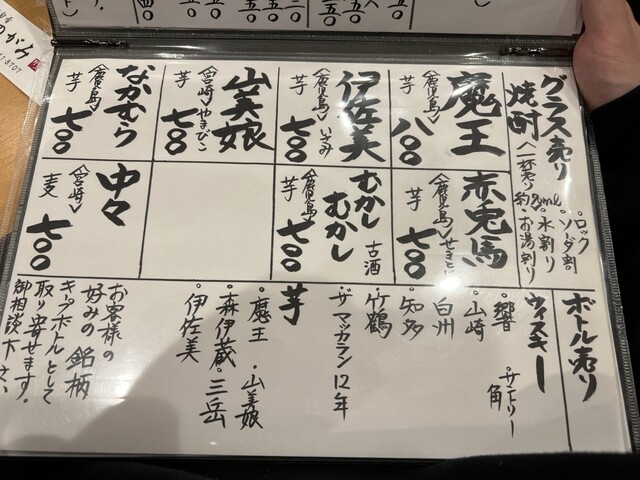 グラス売り
焼酎
〈一杯売り
・ロック
・ソーダ割
・水割り
・お湯割り
魔王
〈鹿児島〉
芋
八〇〇
伊佐美
〈鹿児島〉いさみ
芋
七〇〇
山美娘
〈宮崎〉やまびこ
芋
七〇〇
なかむら
〈鹿児島〉
芋
七〇〇
赤兎馬
〈鹿児島〉せきとば
芋
七〇〇
むかし
むかし
古酒
〈鹿児島〉
芋
七〇〇
中々
〈宮崎〉
麦
七〇〇
ボトル売り
ウィスキー
・響
・サントリー
角
・山崎
・白州
・知多
・竹鶴
・ザマッカラン12年
芋
・魔王
・山美娘
・森伊蔵
・三岳
・伊佐美
お客様の
好みの銘柄
キープボトルとして
取り寄せます。
御相談下さい